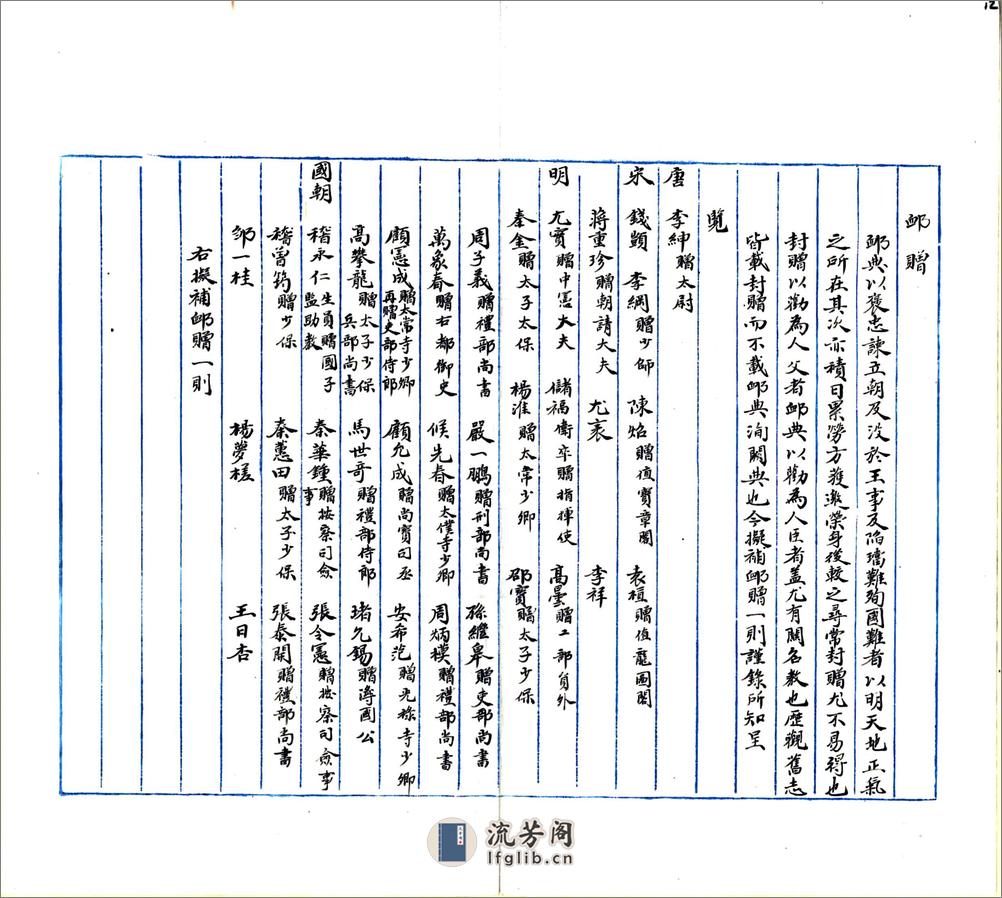 12
卹贈
卹典以褒忠諫立朝及沒於王事及陷璫難殉國難者以明天地正氣
之所在其次亦積日累勞方獲邀榮身後較之尋常封贈尤不易得也
封贈以勸為人父者卹典以勸為人臣者蓋尤有關名教也歷觀舊志
皆載封贈而不載卹典洵闕典也今擬補卹贈一則謹錄所知呈
覽
唐 李紳贈太尉
宋 錢顗 李綱贈少師 陳炤贈直寶章閣 袁植贈直龍圖閣
蔣重珍贈朝請大夫 尤袤 李祥
明 尤實贈中憲大夫 儲福衛卒贈指揮使 高曇贈工部員外
秦金贈太子太保 楊淮贈太常少卿 邵寶贈太子少保
周子義贈禮部尚書 嚴一鵬贈刑部尚書 孫繼皋贈吏部尚書
萬象春贈右都御史 候先春贈太僕寺少卿 周炳模贈禮部尚書
顧憲成贈太常寺少卿再贈吏部侍郎 顧允成贈尚寶司丞 安希范贈光祿寺少卿
高攀龍贈太子少保兵部尚書 馬世奇贈禮部侍郎 堵允錫贈潯國公
國朝 嵇永仁生員贈國子監助教 秦華鍾贈按察司僉事 張令憲贈按察司僉事
嵇曾筠贈少保 秦蕙田贈太子少保 張泰開贈禮部尚書
鄒一桂 楊夢槎 王日杏
右擬補卹贈一則
流芳阁
lfglib.cn